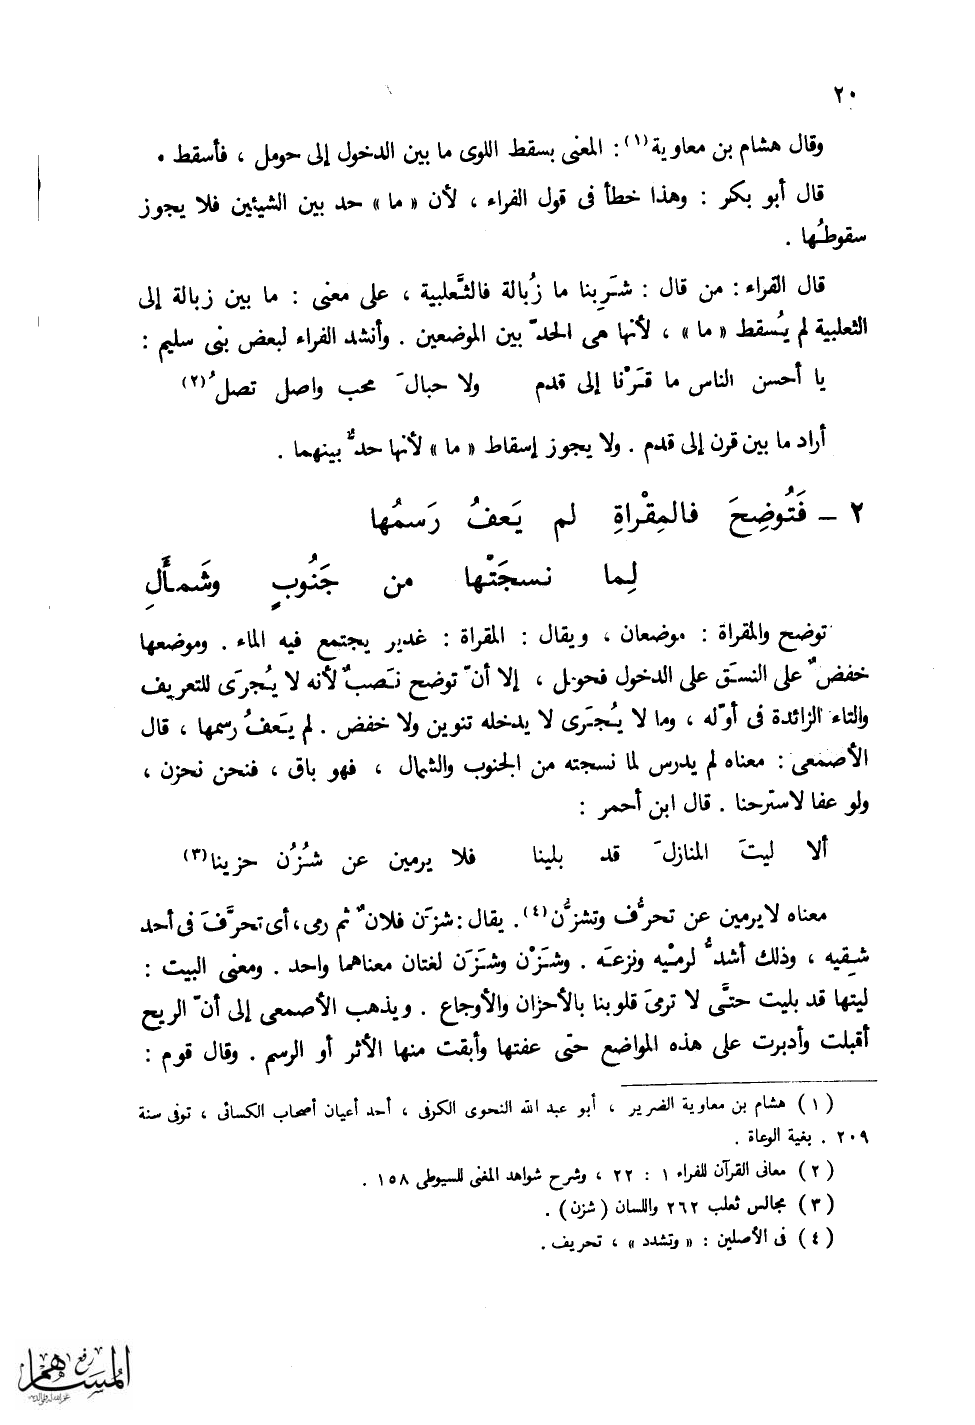 ٢٠
وقال هشام بن معاوية(١): المعنى بسقط اللوى ما بين الدخول إلى حومل ، فأسقط .
قال أبو بكر : وهذا خطأ فى قول الفراء ، لأن « ما » حد بين الشيئين فلا يجوز
سقوطُها .
قال الفراء : من قال : شَرِبنا ما زُبالة فالثَّعلبية ، على معنى : ما بين زبالة إلى
الثعلبية لم يُسقط « ما » ، لأنها هى الحدّ بين الموضعين . وأنشد الفراء لبعض بنى سليم :
يا أحسن الناس ما قَرْنا إلى قدم ولا حبالَ محب واصل تصلُ(٢)
أراد ما بين قرن إلى قدم . ولا يجوز إسقاط « ما » لأنها حدٌّ بينهما .
٢ ــ فَتُوضِحَ فالمِقْراةِ لم يَعفُ رَسمُها
لِما نسجَتْها من جَنُوبٍ وشَمأَلِ
توضح والمقراة : موضعان ، ويقال : المقراة : غدير يجتمع فيه الماء . وموضعها
خفضٌ على النسَق على الدخول فحومل ، إلا أنّ توضح نَصبٌ لأنه لا يُجرَى للتعريف
والتاء الزائدة فى أوّله ، وما لا يُجرَى لا يدخله تنوين ولا خفض . لم يَعفُ رسمها ، قال
الأصمعى : معناه لم يدرس لما نسجته من الجنوب والشمال ، فهو باق ، فنحن نحزن ،
ولو عفا لاسترحنا . قال ابن أحمر :
ألا ليتَ المنازلَ قد بلينا فلا يرمين عن شُزُن حزينا(٣)
معناه لا يرمين عن تحرُّف وتشزُّن(٤). يقال : شزَن فلانٌ ثم رمى، أى تحرَّفَ فى أحد
شِقيه ، وذلك أشدُّ لرمْيه ونزعَه . وشَزْن وشَزَن لغتان معناهما واحد . ومعنى البيت :
ليتها قد بليت حتَّى لا ترمىَ قلوبنا بالأحزان والأوجاع . ويذهب الأصمعى إلى أنّ الريح
أقبلت وأدبرت على هذه المواضع حتى عفتها وأبقت منها الأثر أو الرسم . وقال قوم :
( ١ ) هشام بن معاوية الضرير ، أبو عبد الله النحوى الكوفى ، أحد أعيان أصحاب الكسائى ، توفى سنة
٢٠٩ . بغية الوعاة .
( ٢ ) معانى القرآن للفراء ١ : ٢٢ ، وشرح شواهد المغنى للسيوطى ١٥٨ .
( ٣ ) مجالس ثعلب ٢٦٢ واللسان ( شزن ) .
( ٤ ) فى الأصلين : « وتشدد » ، تحريف .